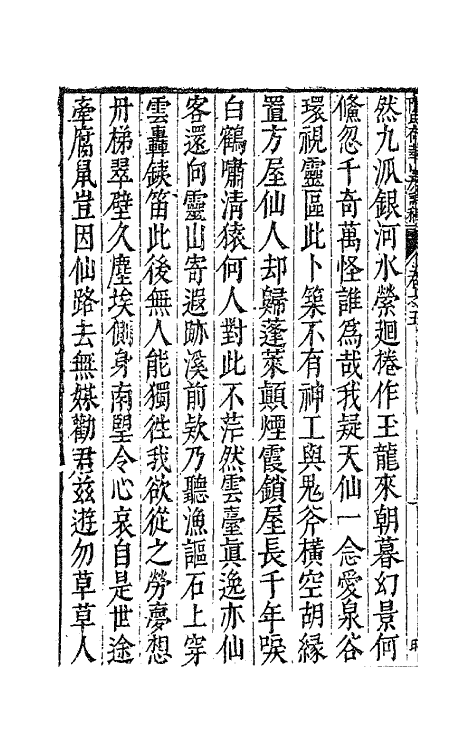 然九派銀河水縈迴棬作玉龍來朝暮幻景何
儵忽千奇萬怪誰為哉我疑天仙一念愛泉谷
環視靈區此卜築不有神工與鬼斧橫空胡緣
置方屋仙人却歸蓬萊顛煙霞鎖屋長千年唳
白鶴嘯清猿何人對此不茫然雲臺真逸亦仙
客還向靈山寄遐跡溪前欵乃聽漁謳石上穿
雲轟鐵笛此後無人能獨徃我欲從之勞夢想
丹梯翠壁久塵埃側身南望令心哀自是世途
牽腐鼠豈因仙路去無媒勸君茲遊勿草草人